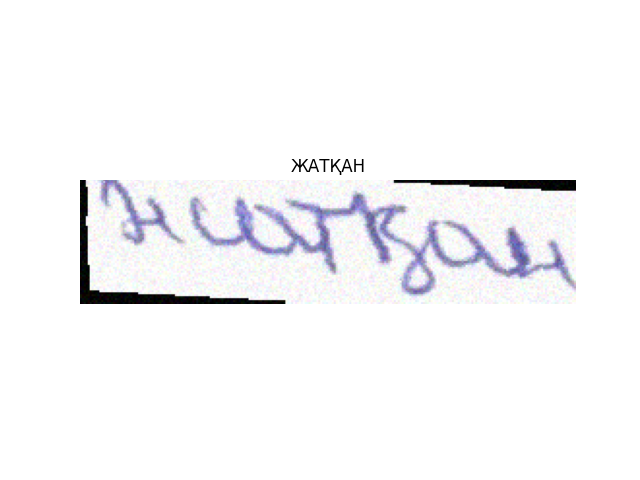 ЖАТҚАН
жатқан